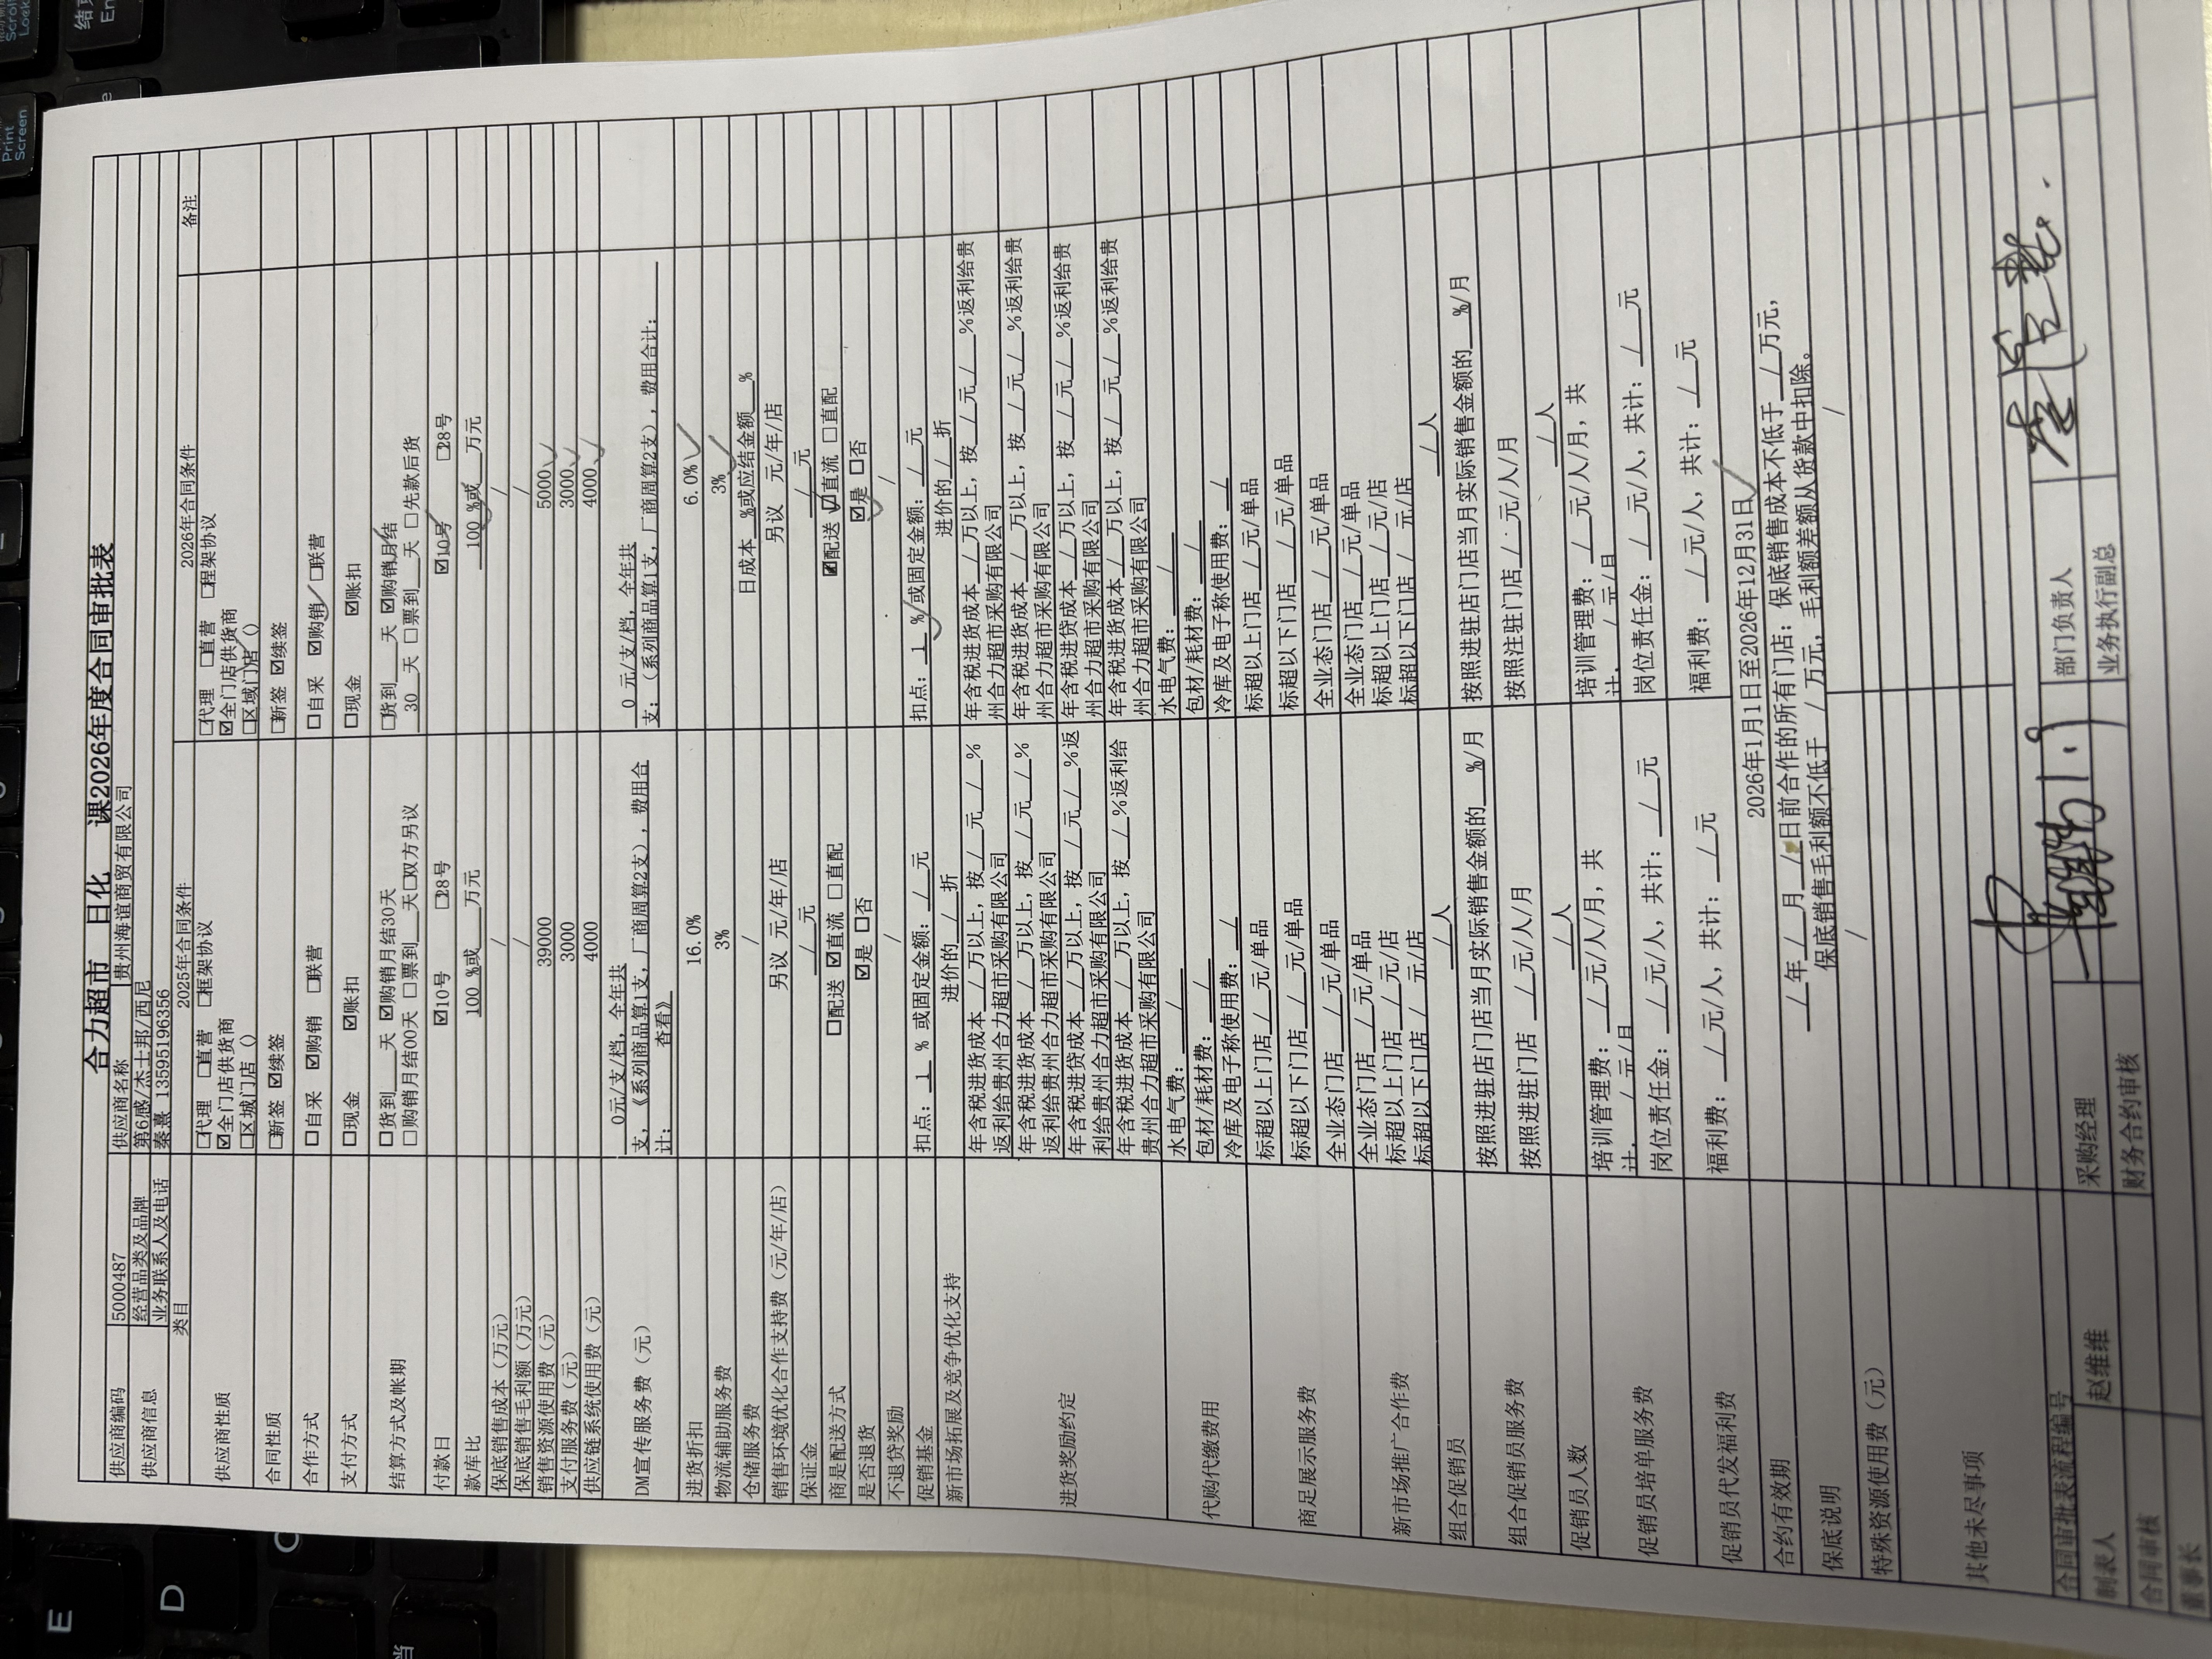 合力超市 日化 课2026年度合同审批表
供应商编码 5000487 供应商名称 贵州海谊商贸有限公司
供应商信息 经营品类及品牌 第6感/杰士邦/西尼
业务联系人及电话 秦熹 13595196356
类目 2025年合同条件 2026年合同条件 备注
供应商性质 □代理 □直营 □框架协议 □代理 □直营 □程架协议
☑全门店供货商 ☑全门店供货商
□区城门店（） □区域门店（）
合同性质 □新签 ☑续签 □新签 ☑续签
合作方式 □自采 ☑购销 □联营 □自采 ☑购销 □联营
支付方式 □现金 ☑账扣 □现金 ☑账扣
结算方式及帐期 □货到___天 ☑购销月结30天 □货到___天 ☑购销月结
□购销月结00天 □票到___天□双方另议 30 天 □票到___天 □先款后货
付款日 ☑10号 □28号 ☑10号 □28号
款库比 100 %或___万元 100 %或___万元
保底销售成本（万元） / /
保底销售毛利额（万元） / /
销售资源使用费（元） 39000 5000
支付服务费（元） 3000 3000
供应链系统使用费（元） 4000 4000
DM宣传服务费（元） 0元/支/档，全年共 0 元/支/档，全年共
支，《系列商品算1支，厂商周算2支），费用合 支：（系列商品算1支，厂商周算2支），费用合计：
计： 查看》
进货折扣 16.0% 6.0%
物流辅助服务费 3% 3%
仓储服务费 / 日成本___%或应结金额___%
销售环境优化合作支持费（元/年/店） 另议 元/年/店 另议 元/年/店
保证金 / 元 / 元
商是配送方式 □配送 ☑直流 □直配 ☑配送 ☑直流 □直配
是否退货 ☑是 □否 ☑是 □否
不退贷奖励 / /
促销基金 扣点： 1 % 或固定金额： / 元 扣点： 1 % 或固定金额： / 元
新市场拓展及竞争优化支持 进价的 / 折 进价的 / 折
进货奖励约定 年含税进货成本 / 万以上，按 / 元 / % 年含税进货成本 / 万以上，按 / 元 / %返利给贵
返利给贵州合力超市采购有限公司 州合力超市采购有限公司
年含税进货成本 / 万以上，按 / 元 / % 年含税进货成本 / 万以上，按 / 元 / %返利给贵
返利给贵州合力超市采购有限公司 州合力超市采购有限公司
年含税进贷成本 / 万以上，按 / 元 / %返 年含税进贷成本 / 万以上，按 / 元 / %返利给贵
利给贵州合力超市采购有限公司 州合力超市采购有限公司
年含税进货成本 / 万以上，按 / %返利给 年含税进货成本 / 万以上，按 / 元 / %返利给贵
贵州合力超市采购有限公司 州合力超市采购有限公司
代购代缴费用 水电气费： / 水电气费： /
包材/耗材费： / 包材/耗材费： /
冷库及电子称使用费： / 冷库及电子称使用费： /
商足展示服务费 标超以上门店 / 元/单品 标超以上门店 / 元/单品
标超以下门店 / 元/单品 标超以下门店 / 元/单品
全业态门店 / 元/单品 全业态门店 / 元/单品
新市场推广合作费 全业态门店 / 元/单品 全业态门店 / 元/单品
标超以上门店 / 元/店 标超以上门店 / 元/店
标超以下门店 / 元/店 标超以下门店 / 元/店
组合促销员 / 人 / 人
组合促销员服务费 按照进驻店门店当月实际销售金额的___%/月 按照进驻店门店当月实际销售金额的___%/月
按照进驻门店 / 元/人/月 按照注驻门店 / 元/人/月
促销员人数 / 人 / 人
促销员培单服务费 培训管理费： / 元/人/月，共 培训管理费： / 元/人/月，共
计. / 元/月 计. / 元/月
岗位责任金： / 元/人，共计： / 元 岗位责任金： / 元/人，共计： / 元
促销员代发福利费 福利费： / 元/人，共计： / 元 福利费： / 元/人，共计： / 元
合约有效期 2026年1月1日至2026年12月31日
保底说明 / 年 / 月 / 日前合作的所有门店：保底销售成本不低于 / 万元，
保底销售毛利额不低于 / 万元，毛利额差额从货款中扣除。
特殊资源使用费（元） / /
其他未尽事项
合同审批表流程编号
制表人 赵维维 采购经理 部门负责人
合同审核 财务合约审核 业务执行副总
董事长